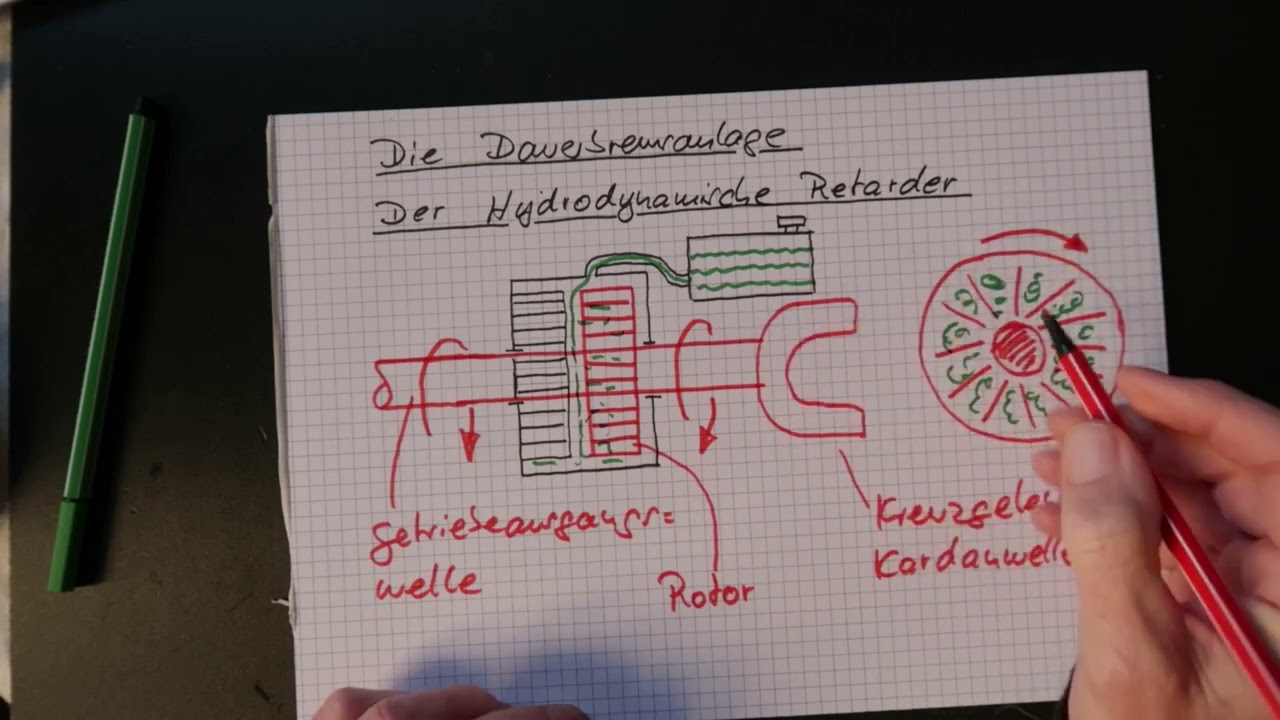 Die Dauerbremsanlage
Der Hydrodynamische Retarder
Getriebeausgangs=
welle
Rotor
Kreuzgele
Kardanwelle